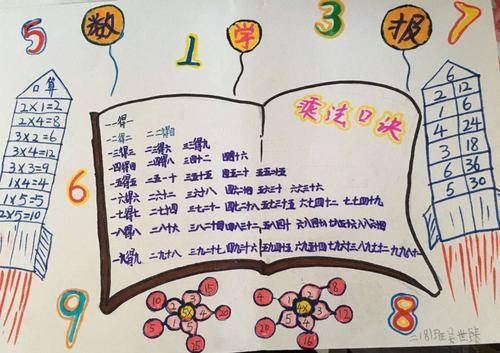 5 数 1 学 3 报 7
口算
2×1=2
2×4=8
3×2=6
3×4=12
3×3=9
1×4=4
1×5=5
2×5=10
乘法口决
一一得一
一二得二 二二得四
一三得三 二三得六 三三得九
一四得四 二四得八 三四十二 四四十六
一五得五 二五一十 三五十五 四五二十 五五二十五
一六得六 二六十二 三六十八 四六二十四 五六三十 六六三十六
一七得七 二七十四 三七二十一 四七二十八 五七三十五 六七四十二 七七四十九
一八得八 二八十六 三八二十四 四八三十二 五八四十 六八四十八 七八五十六 八八六十四
一九得九 二九十八 三九二十七 四九三十六 五九四十五 六九五十四 七九六十三 八九七十二 九九八十一
6
2 12
1 6
4 24
3 18
6 36
5 30
6
9
8
5×
10 15 20 25 5
4×
4 8 12 16 20